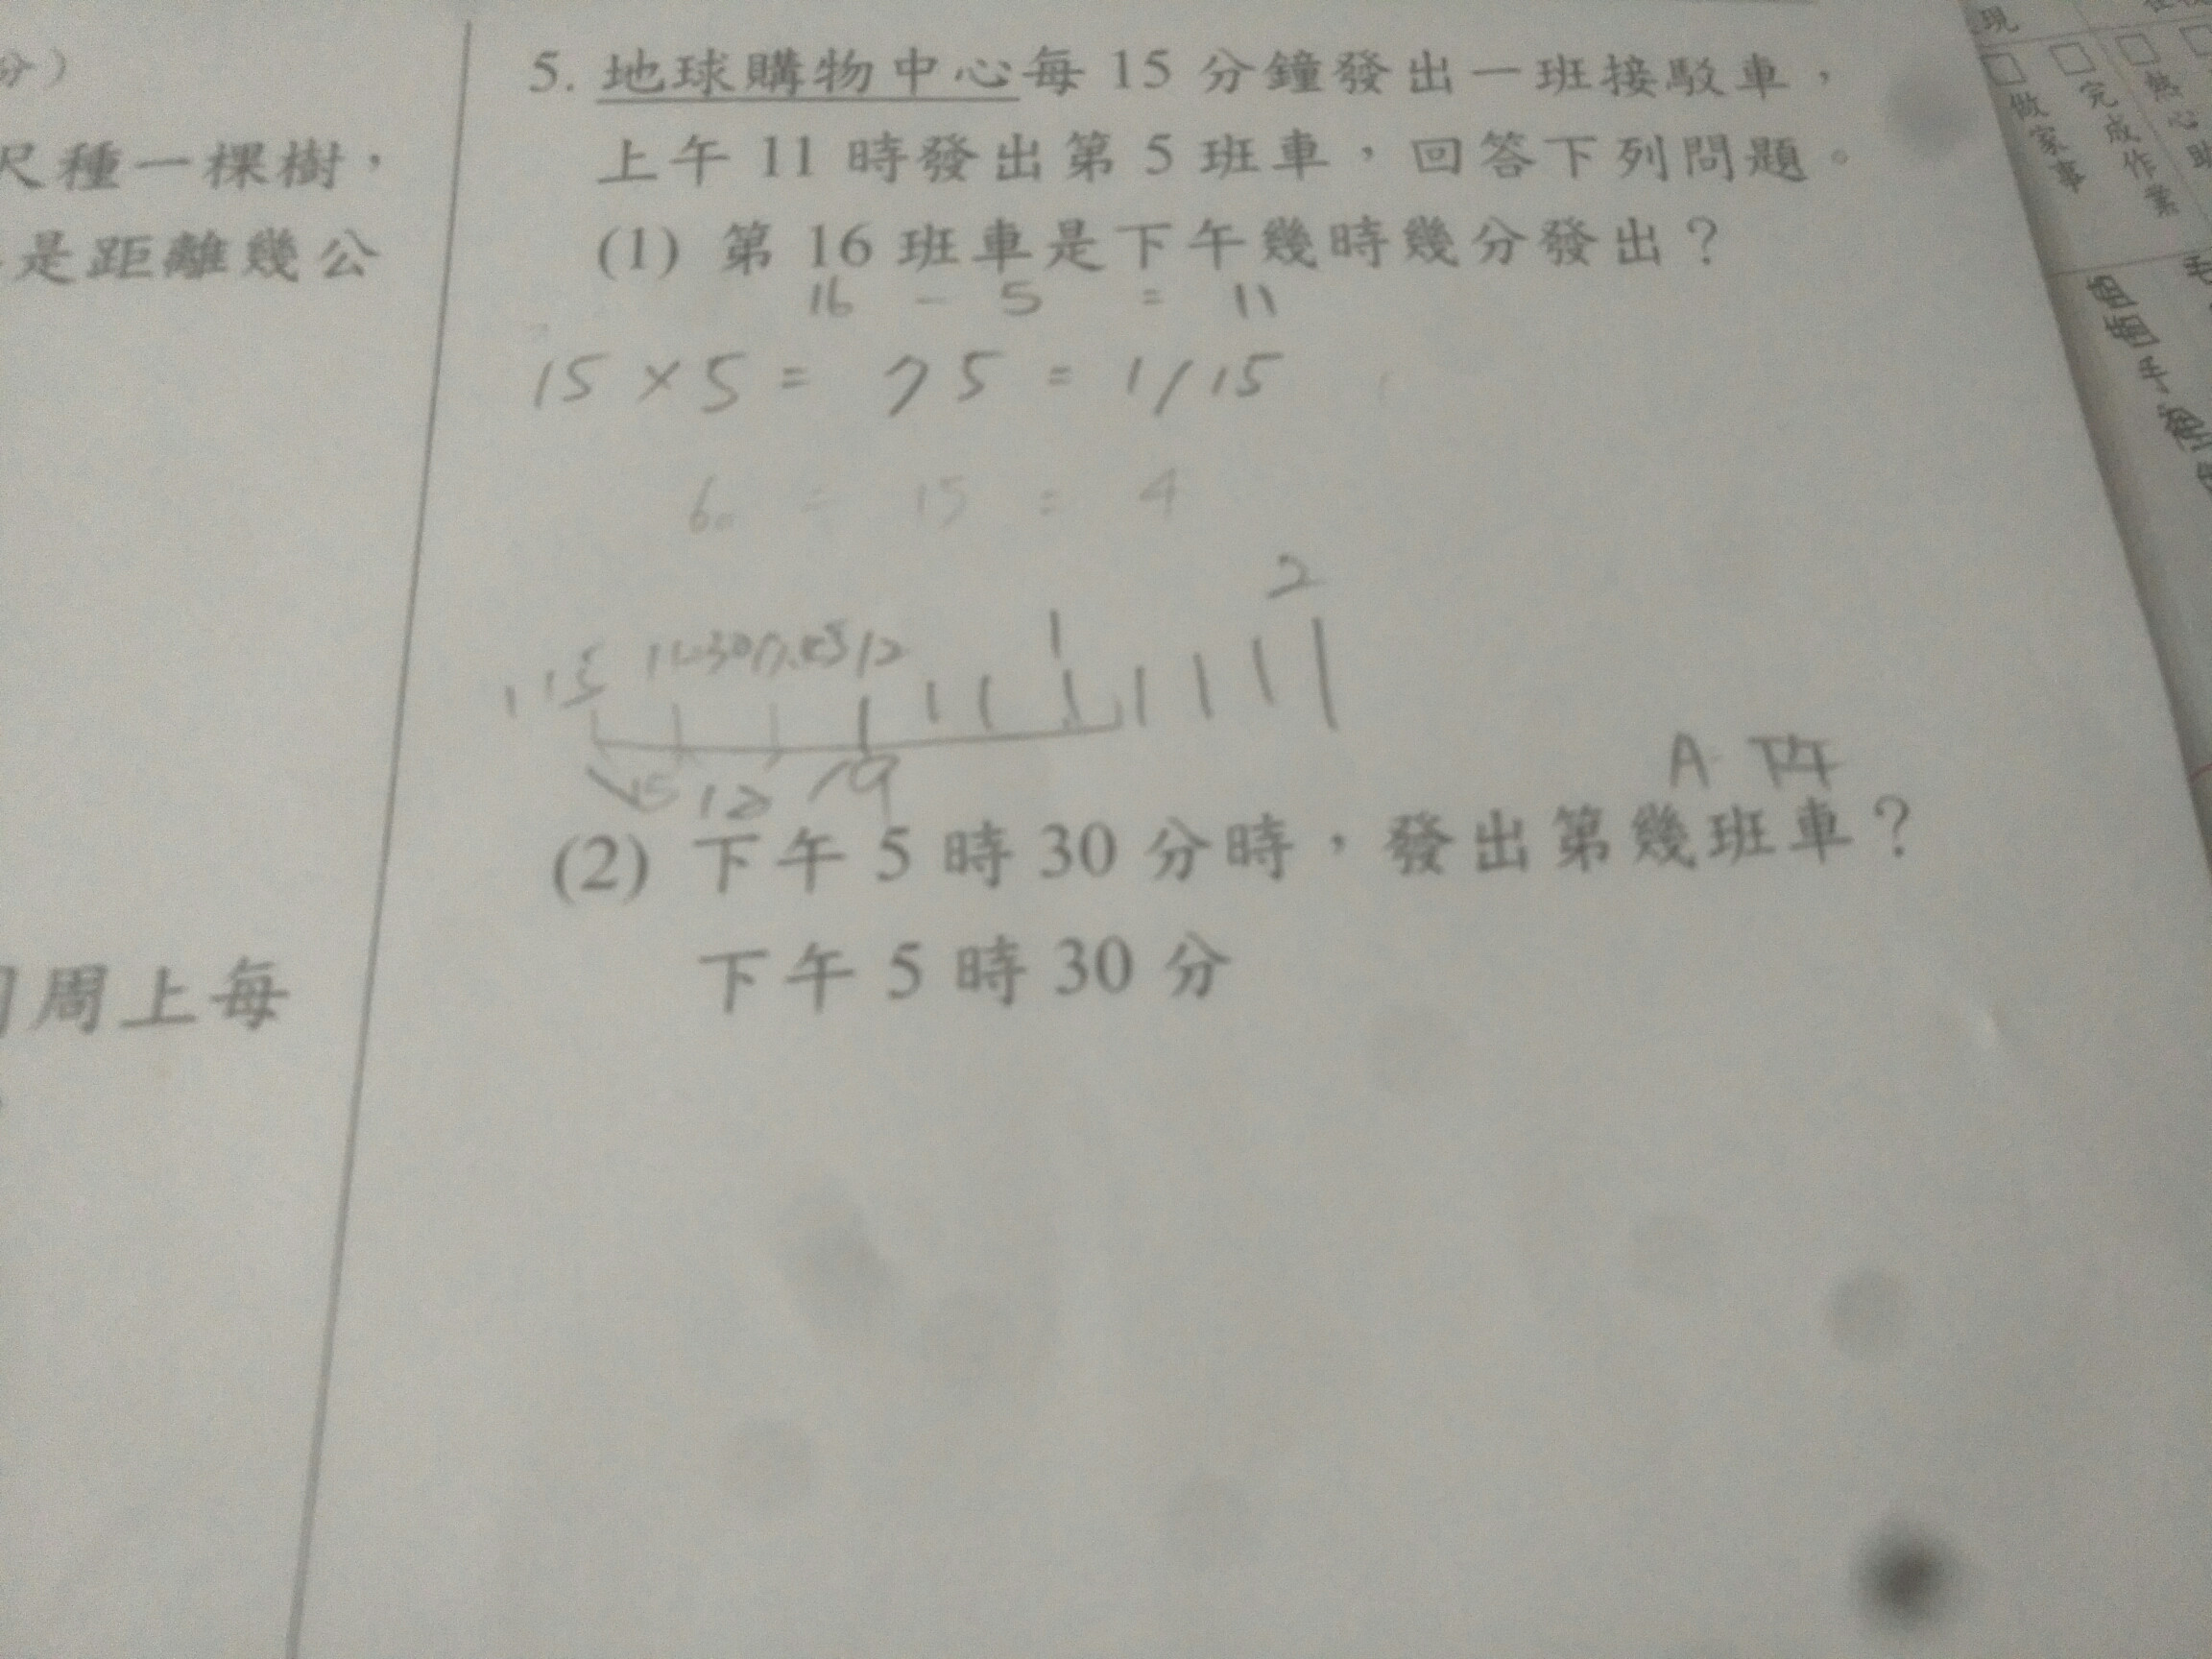 分）
尺種一棵樹，
是距離幾公
周上每
5. 地球購物中心每 15 分鐘發出一班接駁車，
上午 11 時發出第 5 班車，回答下列問題。
(1) 第 16 班車是下午幾時幾分發出？
16 - 5 = 11
15 × 5 = 75 = 1/15
60 = 15 = 4
2
1
12
(2) 下午 5 時 30 分時，發出第幾班車？
下午 5 時 30 分
現
做家事
完成作業
熱心助